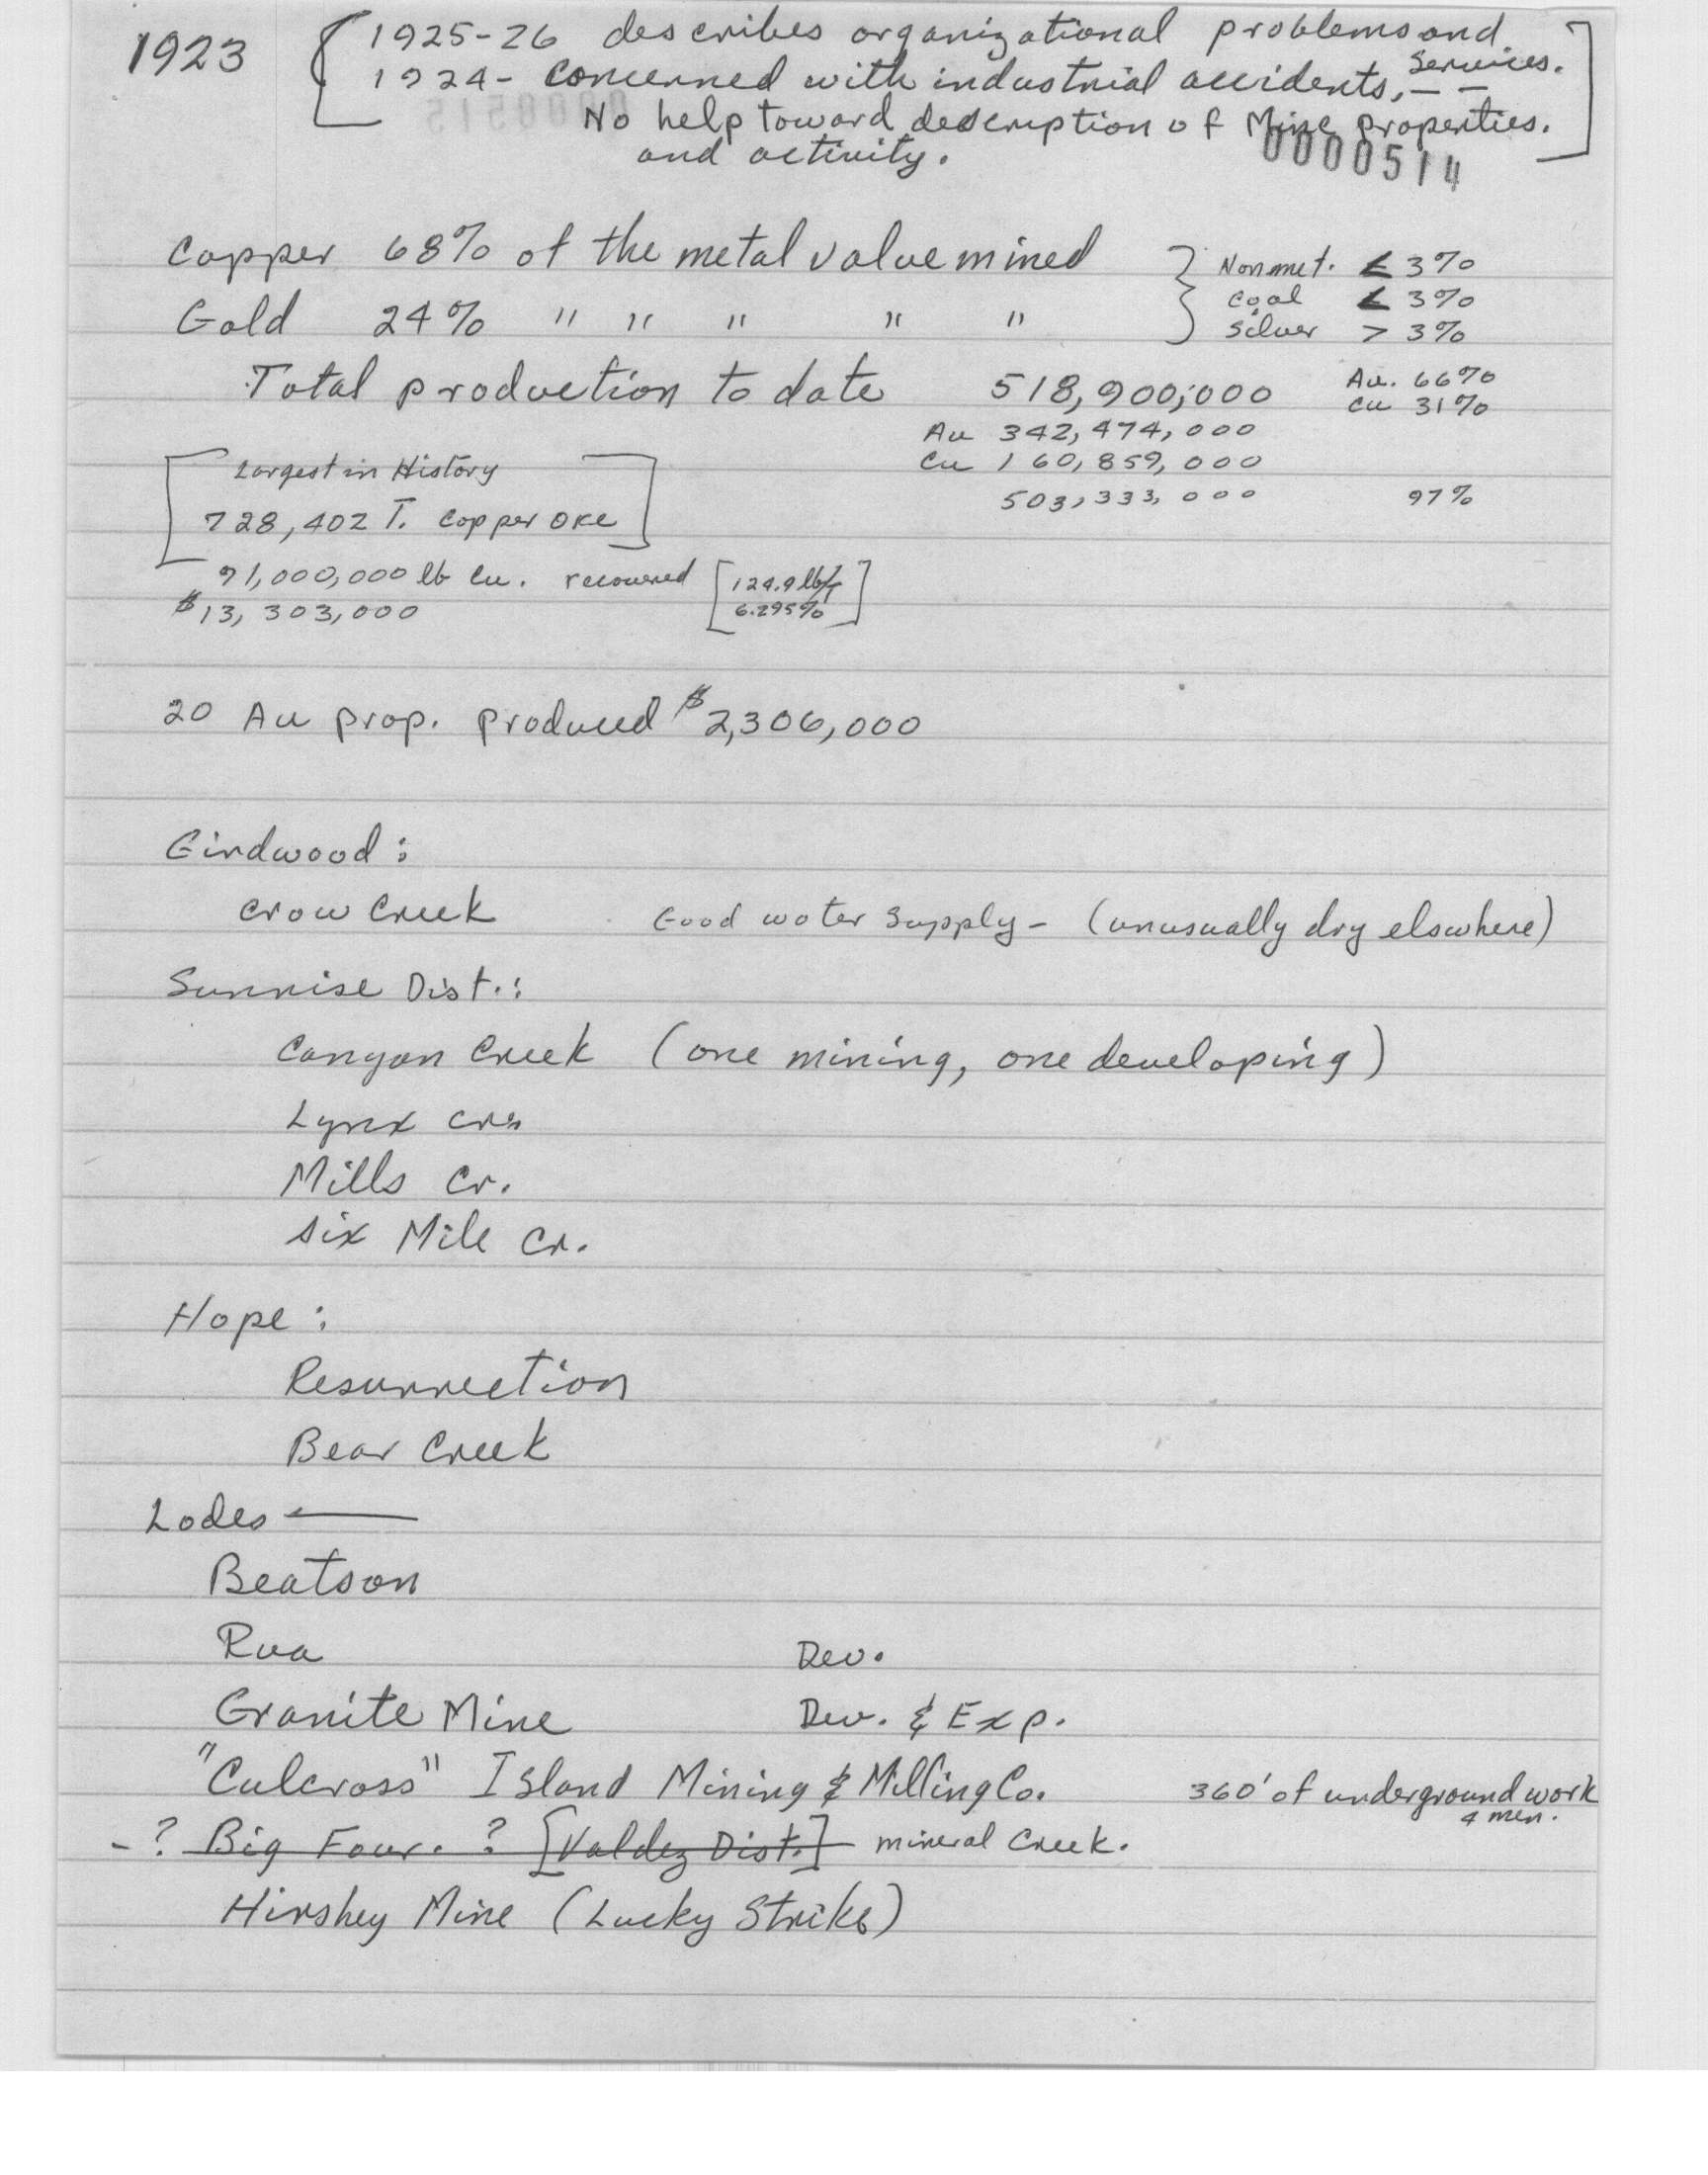 1923 [ 1925-26 describes organizational problems and services.
1924- concerned with industrial accidents, — —
No help toward description of Mine properties.
and activity. ]
0000514
Copper 68% of the metal value mined } Nonmet. < 3%
Coal < 3%
Gold 24% " " " " " } Silver > 3%
Total production to date 518,900,000 Au. 66%
Cu 31%
Au 342,474,000
Cu 160,859,000
503,333,000 97%
[ Largest in History
728,402 T. Copper Ore ]
91,000,000 lb Cu. recovered [ 124.9 lb/T
$13,303,000 6.295% ]
20 Au prop. produced $2,306,000
Girdwood :
Crow Creek Good water supply - (unusually dry elsewhere)
Sunrise Dist. :
Canyon Creek (one mining, one developing)
Lynx Cr.
Mills Cr.
Six Mile Cr.
Hope :
Resurrection
Bear Creek
Lodes —
Beatson
Rua Dev.
Granite Mine Dev. & Exp.
"Culcross" Island Mining & Milling Co. 360' of underground work
4 men.
- ? Big Four. ? [Valdez Dist.] mineral Creek.
Hirshey Mine (Lucky Strike)